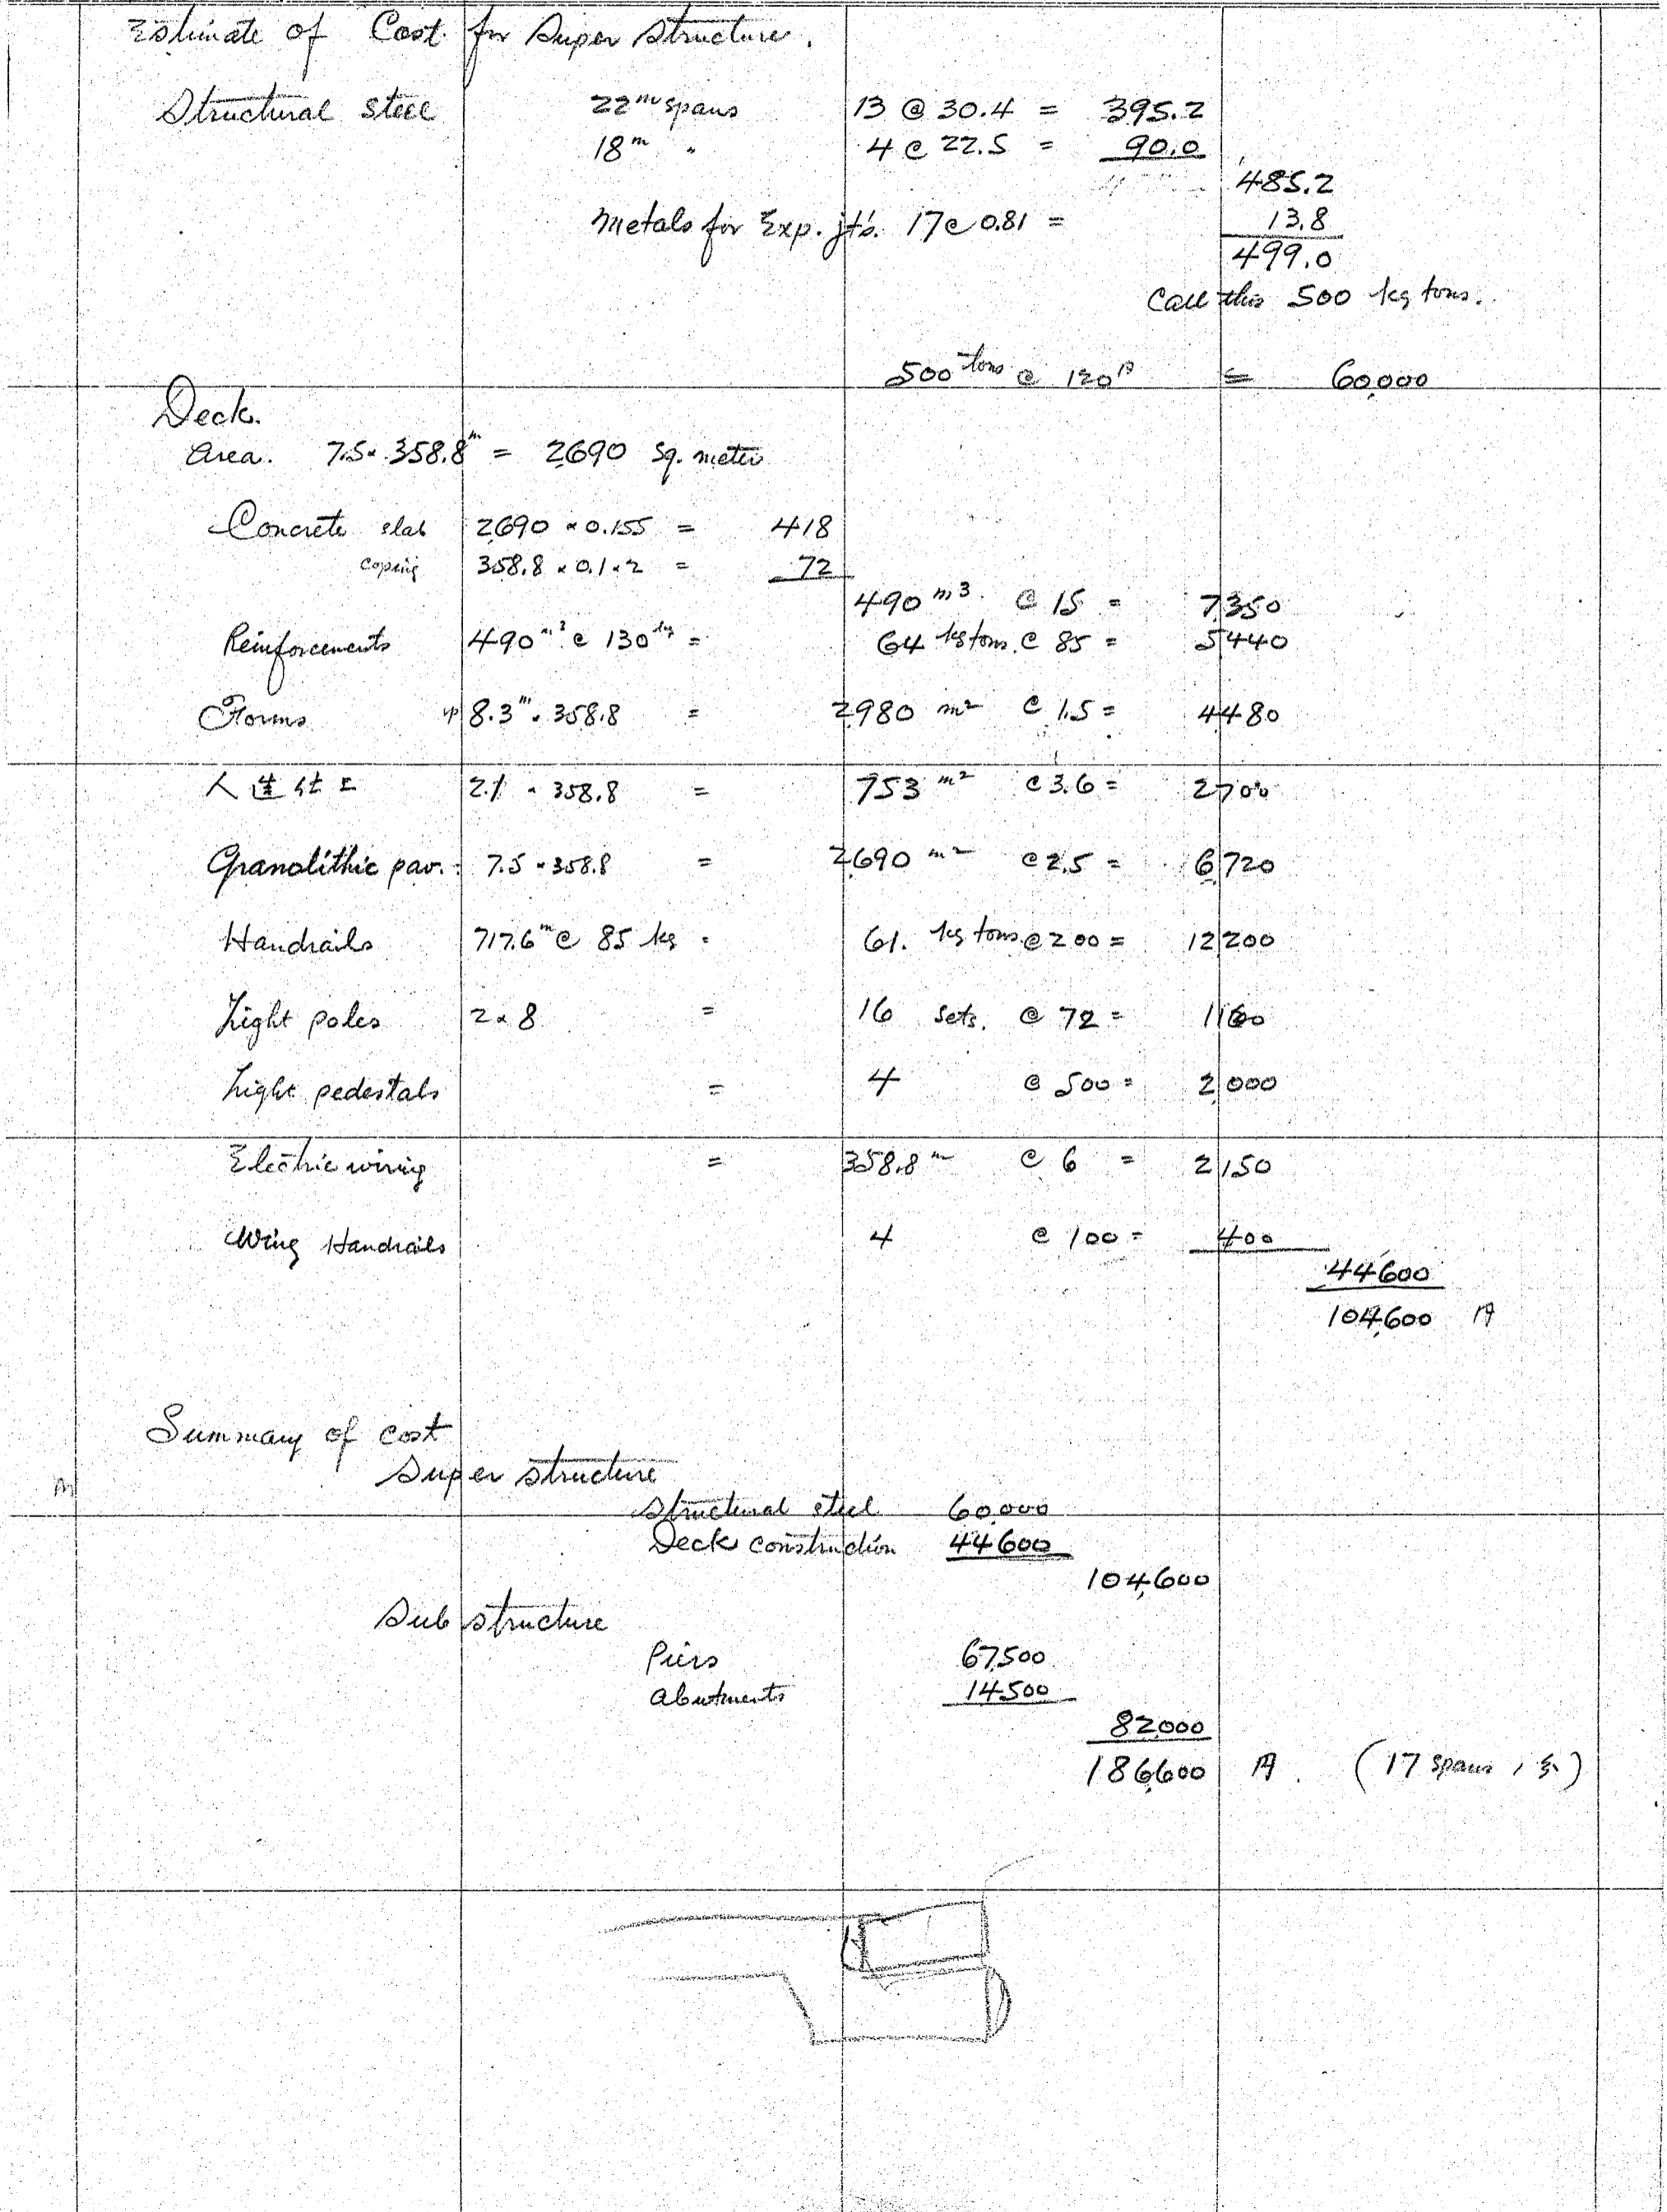 Estimate of Cost for Super Structure.
Structural steel 22m spans 13 @ 30.4 = 395.2
18m " 4 @ 22.5 = 90.0
485.2
Metals for Exp. jts. 17 @ 0.81 = 13.8
499.0
Call this 500 kg tons.
500 tons @ 120円 = 60,000
Deck.
Area. 7.5 × 358.8m = 2690 sq. meter
Concrete slab 2690 × 0.155 = 418
coping 358.8 × 0.1 × 2 = 72
490 m3 @ 15 = 7,350
Reinforcements 490m3 @ 130kg = 64 kg tons @ 85 = 5,440
Forms 8.3m × 358.8 = 2980 m2 @ 1.5 = 4480
人造仕上 2.1 × 358.8 = 753 m2 @ 3.6 = 2700
Granolithic pav. 7.5 × 358.8 = 2,690 m2 @ 2.5 = 6,720
Handrails 717.6m @ 85 kg = 61. kg tons @ 200 = 12,200
Light poles 2 × 8 = 16 sets. @ 72 = 1160
Light pedestals = 4 @ 500 = 2,000
Electric wiring = 358.8m @ 6 = 2,150
Wing Handrails 4 @ 100 = 400
44,600
104,600 円
Summary of cost
Super structure
Structural steel 60,000
Deck construction 44,600
104,600
Sub structure
Piers 67,500
Abutments 14,500
82,000
186,600 円. (17 spans